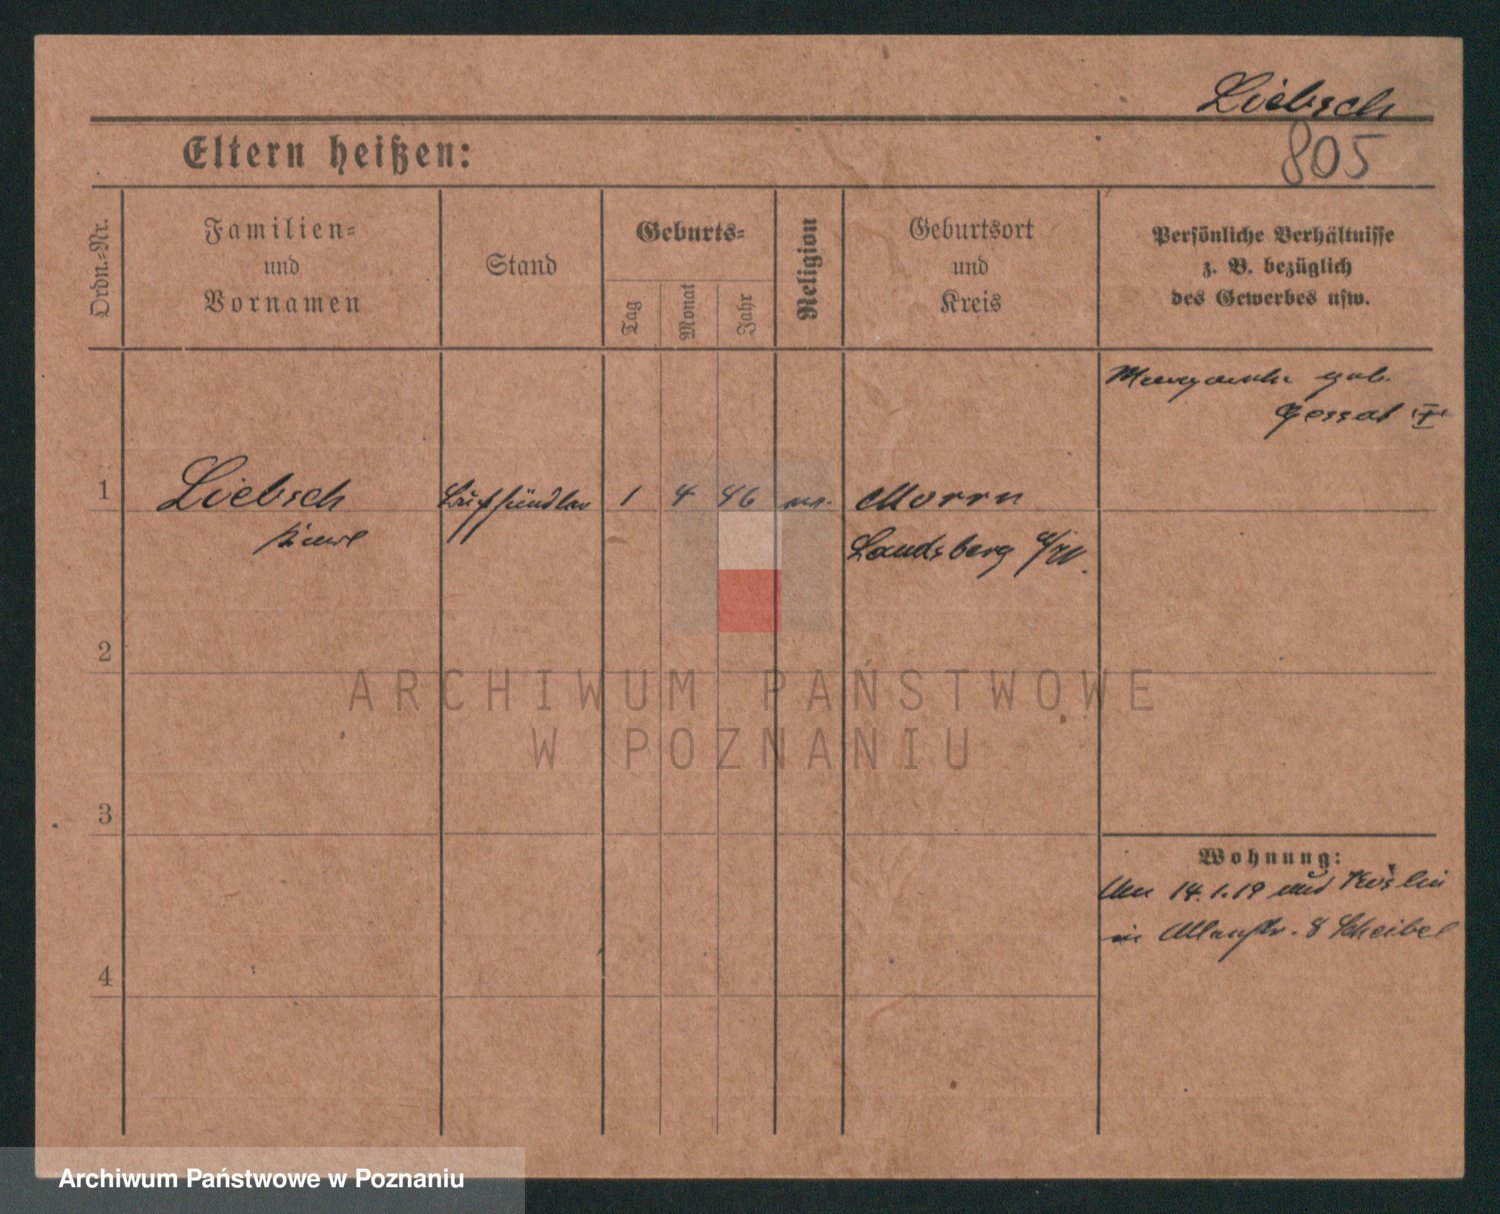 Liebsch
805
Eltern heißen:
Ordn.-Nr.
Familien-
und
Vornamen
Stand
Geburts-
Tag
Monat
Jahr
Religion
Geburtsort
und
Kreis
Persönliche Verhältnisse
z. B. bezüglich
des Gewerbes usw.
geb.
1 Liebsch 1 4 46 Morrn
Landsberg a/W.
2
3
4
Wohnung:
14.1.19 Köslin
in 8 Scheibel
ARCHIWUM PAŃSTWOWE
W POZNANIU
Archiwum Państwowe w Poznaniu